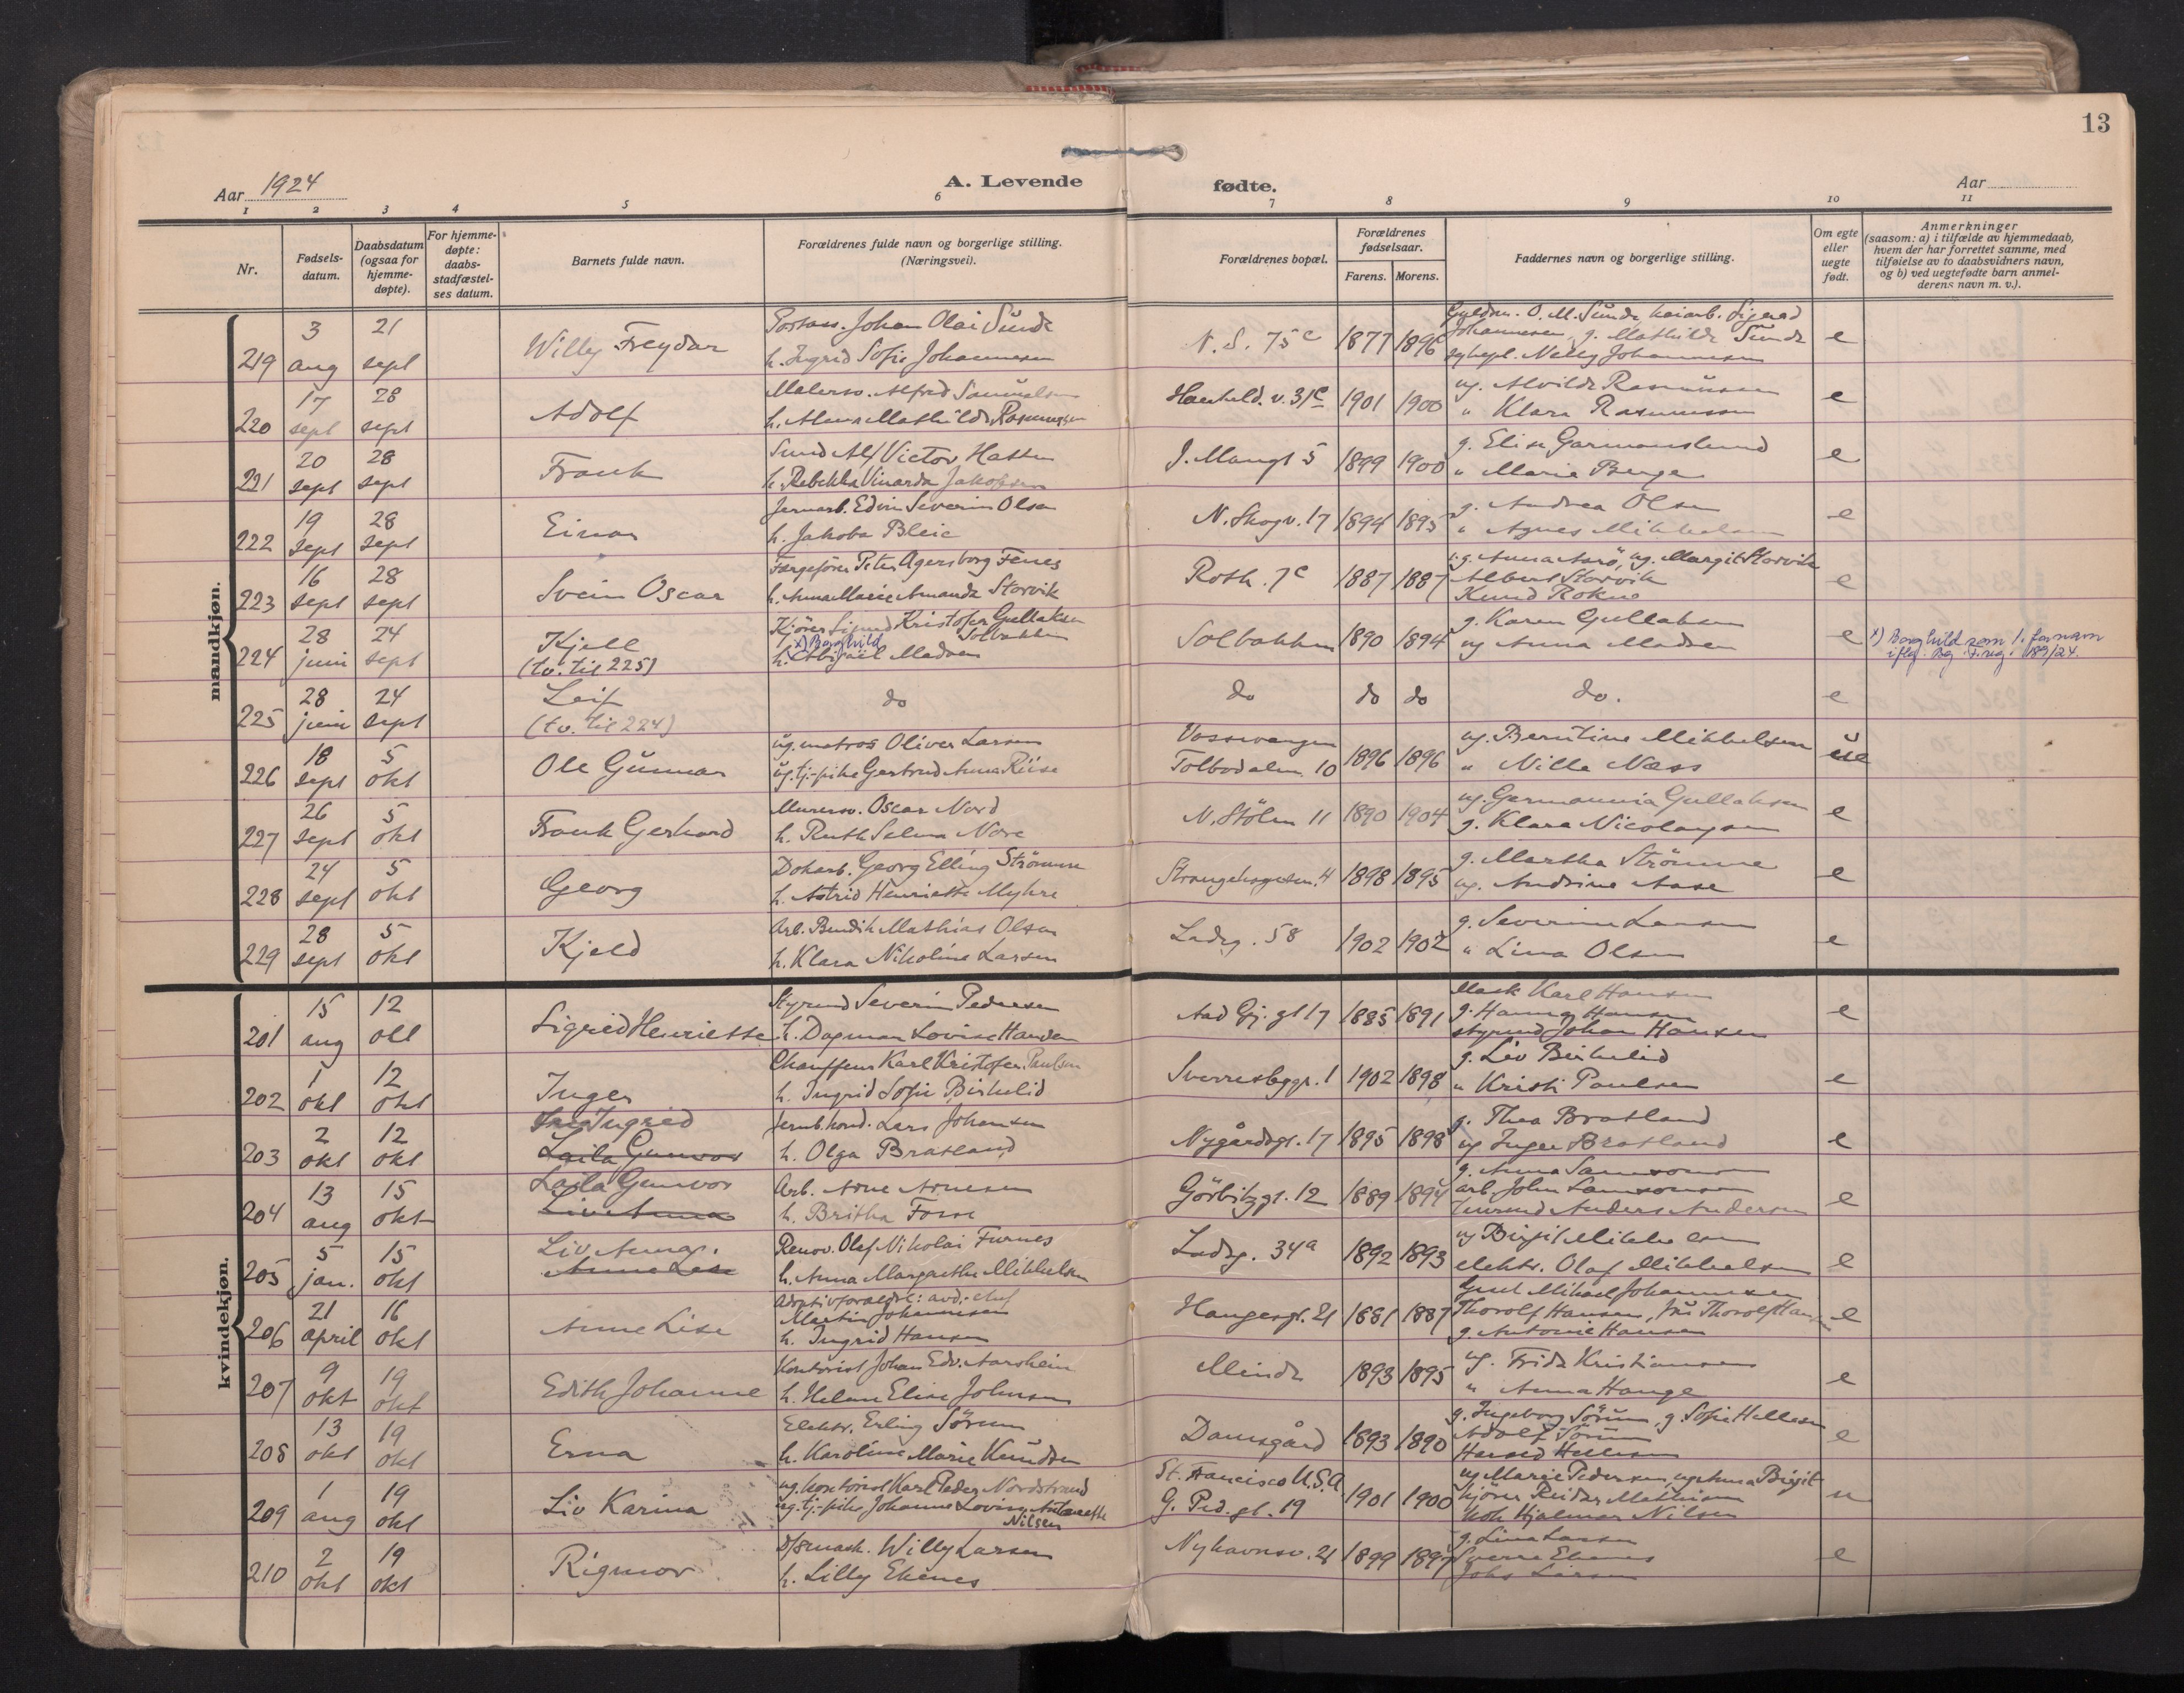 13
Aar 1924
A. Levende fødte.
Aar
1 2 3 4 5 6 7 8 9 10 11
Nr.
Fødsels-
datum.
Daabsdatum
(ogsaa for
hjemme-
døpte).
For hjemme-
døpte:
daabs-
stadfæstel-
ses datum.
Barnets fulde navn.
Forældrenes fulde navn og borgerlige stilling.
(Næringsvei).
Forældrenes bopæl.
Forældrenes
fødselsaar.
Farens. Morens.
Faddernes navn og borgerlige stilling.
Om egte
eller
uegte
født.
Anmerkninger
(saasom: a) i tilfælde av hjemmedaab,
hvem der har forrettet samme, med
tilføielse av to daabsvidners navn,
og b) ved uegtefødte barn anmel-
derens navn m. v.).
mandkjøn.
219 3 aug 21 sept Willy Freydar
Johan Olai Sunde
h. Ingrid Sofie Johannesen
N. S. 75c 1877 1896
O. M. Sunde
Johannesen g. Mathilde Sunde
Nelly Johannesen
e
220 17 sept 28 sept Adolf
Malersv. Alfred Samuelsen
h. Mathilde Rasmussen
v. 31c 1901 1900
ug. Alvilde Rasmussen
" Klara Rasmussen
e
221 20 sept 28 sept Frank
Alf Victor
h. Rebekka Jakobsen
J. Mangt 5 1899 1900
g. Elise Garmanslund
" Marie Berge
e
222 19 sept 28 sept Einar
Jernarb. Edvin Severin Olsen
h. Jakoba Bleie
N. Skogv. 17 1894 1895
g. Andrea Olsen
" Agnes Mikkelsen
e
223 16 sept 28 sept Svein Oscar
Peter Agersborg Fenes
h. Anna Marie Amanda Storvik
Roth. 7c 1887 1887
ug. Margit Storvik
Albert Storvik
Knud Rokne
e
224 28 juni 24 sept Kjell
(tv. til 225)
Kjörer Sigurd Kristofer Gullaksen
Solbakken
x) Borghild
h. Abigael Madsen
Solbakken 1890 1894
g. Karen Gullaksen
ug Anna Madsen
e
x) Borghild som 1. fornavn
iflg. Bg. F.reg. 189/24.
225 28 juni 24 sept Leif
(tv. til 224)
do do do do do.
e
226 18 sept 5 okt Ole Gunnar
ug. matros Oliver Larsen
ug. tj.-pike Gertrud Anna Riise
Vossevangen
Tolbodalm. 10 1896 1896
ug. Berntine Mikkelsen
" Nilla Næss
ue
227 26 sept 5 okt Frank Gerhard
Murersv. Oscar Nord
h. Ruth Selma Nore
N. Stölen 11 1890 1904
ug. Germannia Gullaksen
g. Klara Nicolaysen
e
228 24 sept 5 okt Georg
Dokarb. Georg Elling Strömme
h. Astrid Henriette Myhre
Strangehagen. 4 1898 1895
g. Martha Strömme
ug. Andrine Aase
e
229 28 sept 5 okt Kjeld
Arb. Bendik Mathias Olsen
h. Klara Nikoline Larsen
Ladeg. 58 1902 1902
g. Severine Larsen
" Lina Olsen
e
kvindekjøn.
201 15 aug 12 okt Sigrid Henriette
Styrmd Severin Pedersen
h. Dagmar Lovise Hansen
Aad Gj. gt 17 1885 1891
Mask Karl Hansen
g. Hanna Hansen
styrmd Johan Hansen
e
202 1 okt 12 okt Inger
Chauffeur Karl Kristofer Paulsen
h. Ingrid Sofie Birkelid
Sverresbggt. 1 1902 1898
g. Liv Birkelid
" Kristi Paulsen
e
203 2 okt 12 okt Ingrid
Laila Gunvor
Jernb.kond. Lars Johansen
h. Olga Bratland
Nygårdsgt. 17 1895 1898
g. Thea Bratland
ug Inger Bratland
e
204 13 aug 15 okt Laila Gunvor
Liv Anna
Arb. Arne Arnesen
h. Britha Fosse
Görbitzgt. 12 1889 1894
g. Anna Samsonsen
arb. John Samsonsen
Anders Andersen
e
205 5 jan. 15 okt Liv Anna.
Anne Lise
Renov. Olaf Nikolai Furnes
h. Anna Margrethe Mikkelsen
Ladeg. 34a 1892 1893
ug Birgit Mikkelsen
elektr. Olaf Mikkelsen
e
206 21 april 16 okt Anne Lise
Adoptivforældre: avd.-chef
Martin Johannesen
h. Ingrid Hansen
Haugesgt. 21 1881 1887
Mikael Johannesen
Thorolf Hansen, fru Thorolf Hansen
g. Antonie Hansen
e
207 9 okt 19 okt Edith Johanne
Kontorist Johan Edv. Aarsheim
h. Helene Elise Johnsen
Minde 1893 1895
ug. Frida Kristiansen
" Anna Hauge
e
208 13 okt 19 okt Erna
Elektr. Erling Sörum
h. Karoline Marie Knudsen
Damsgård 1893 1890
g. Ingeborg Sörum, g. Sofie Hellesen
Adolf Sörum
Harald Hellesen
e
209 1 aug 19 okt Liv Karina
ug. kontorist Karl Peder Nordstrand
ug. tj.-pike Johanne Lovise Antonette
Nilsen
St. Francisco U.S.A.
G. Ped. gt. 19 1901 1900
ug Marie Pedersen, ug Anna Birgit
kjörer Reidar Mathisen
Hjalmar Nilsen
u
210 2 okt 19 okt Rigmor
Willy Larsen
h. Lilly Ekenes
Nyhavnsv. 21 1899 1897
g. Lina Larsen
Sverre Ekenes
Johs Larsen
e